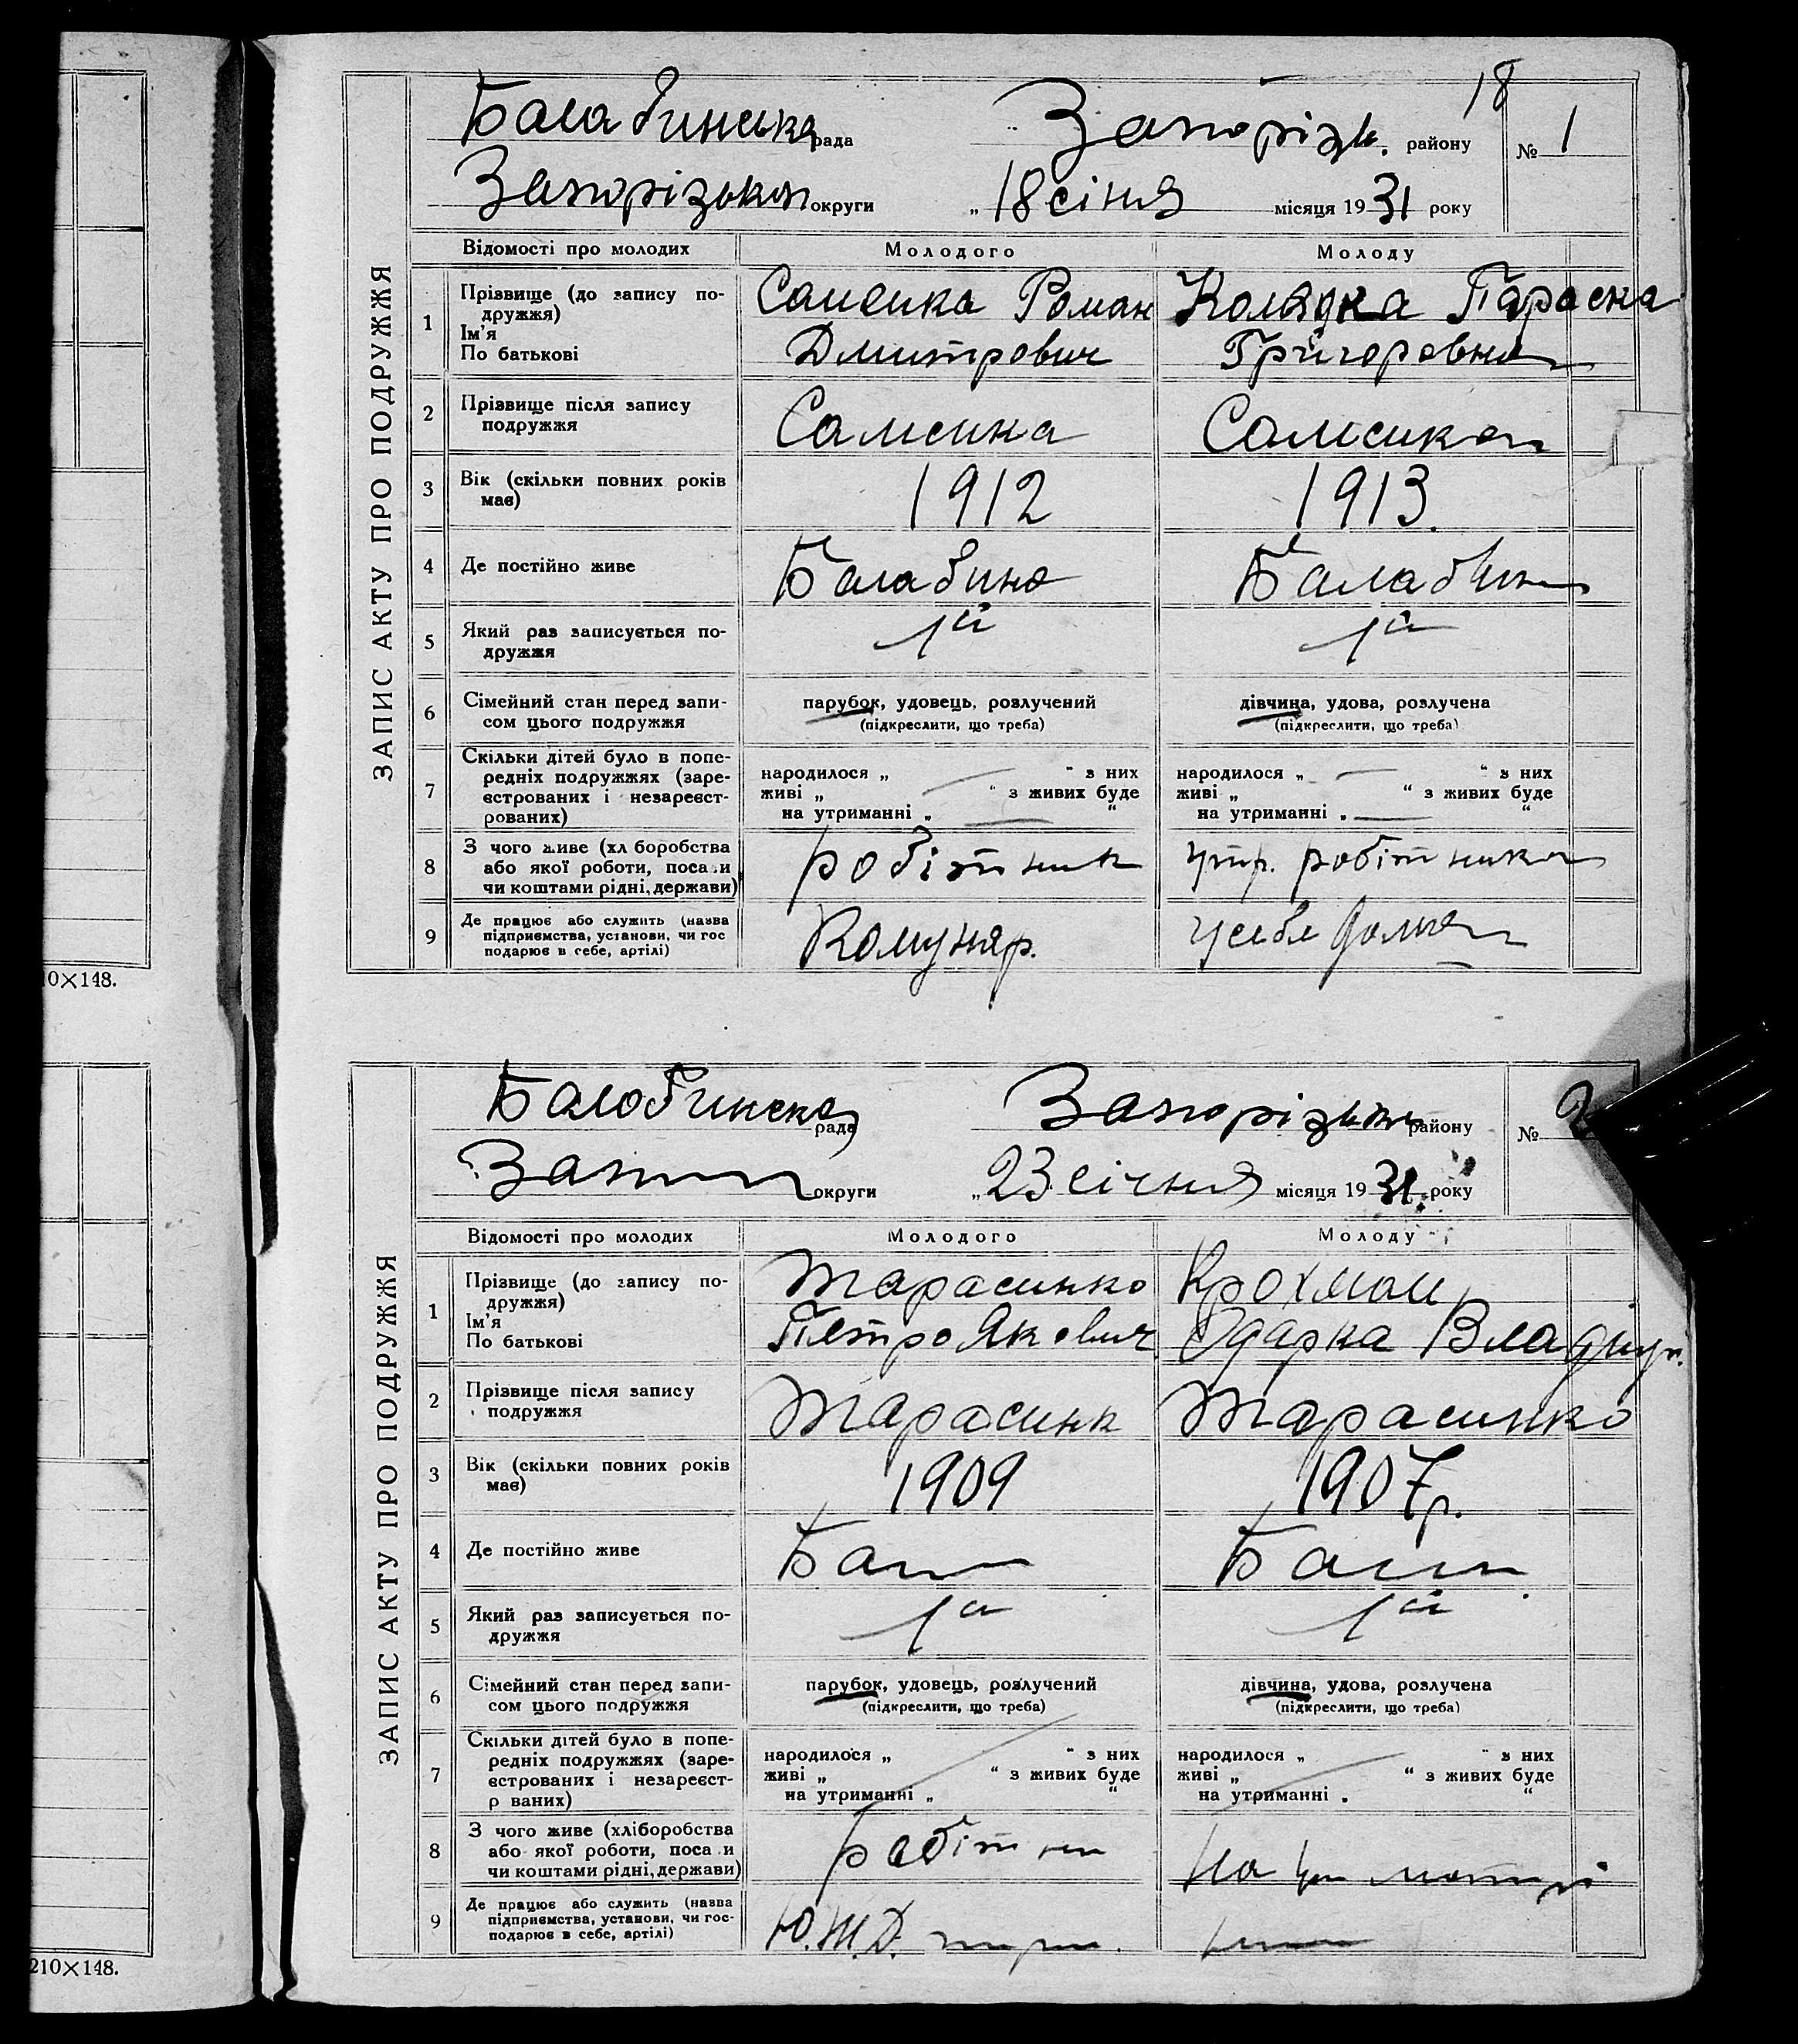 18
Балабинська рада Запорізьк. району № 1
Запорізької округи „ 18 січня місяця 1931 року
ЗАПИС АКТУ ПРО ПОДРУЖЖЯ
Відомості про молодих Молодого Молоду
1 Прізвище (до запису по-
дружжя)
Ім'я
По батькові
Роман
Дмитрович
Параска
Григоровна
2 Прізвище після запису
подружжя
3 Вік (скільки повних років
має)
1912 1913.
4 Де постійно живе Балабино Балабин
5 Який раз записується по-
дружжя
1й 1й
6 Сімейний стан перед запи-
сом цього подружжя
парубок, удовець, розлучений
(підкреслити, що треба)
дівчина, удова, розлучена
(підкреслити, що треба)
7 Скільки дітей було в попе-
редніх подружжях (заре-
єстрованих і незареєст-
рованих)
народилося „ “ з них
живі „ “ з живих буде
на утриманні „ “
народилося „ “ з них
живі „ “ з живих буде
на утриманні „ “
8 З чого живе (хл боробства
або якої роботи, поса и
чи коштами рідні, держави)
робітник утр. робітника
9 Де працює або служить (назва
підприємства, установи, чи гос
подарює в себе, артілі)
Комунар. у себе дома
0×148.
Балабинска рада Запорізьк району № 2
Зап округи „ 23 січня місяця 1931. року
ЗАПИС АКТУ ПРО ПОДРУЖЖЯ
Відомості про молодих Молодого Молоду
1 Прізвище (до запису по-
дружжя)
Ім'я
По батькові
Тарасинко
Петро Якович
Крохмал
Одарка Владжир.
2 Прізвище після запису
подружжя
Тарасинк Тарасинко
3 Вік (скільки повних років
має)
1909 1907р.
4 Де постійно живе Бал Бал
5 Який раз записується по-
дружжя
1й 1й
6 Сімейний стан перед запи-
сом цього подружжя
парубок, удовець, розлучений
(підкреслити, що треба)
дівчина, удова, розлучена
(підкреслити, що треба)
7 Скільки дітей було в попе-
редніх подружжях (заре-
єстрованих і незареєст-
р ваних)
народилося „ “ з них
живі „ “ з живих буде
на утриманні „ “
народилося „ “ з них
живі „ “ з живих буде
на утриманні „ “
8 З чого живе (хліборобства
або якої роботи, поса и
чи коштами рідні, держави)
робітни На
9 Де працює або служить (назва
підприємства, установи, чи гос-
подарює в себе, артілі)
Ю.Ж.Д.
210×148.